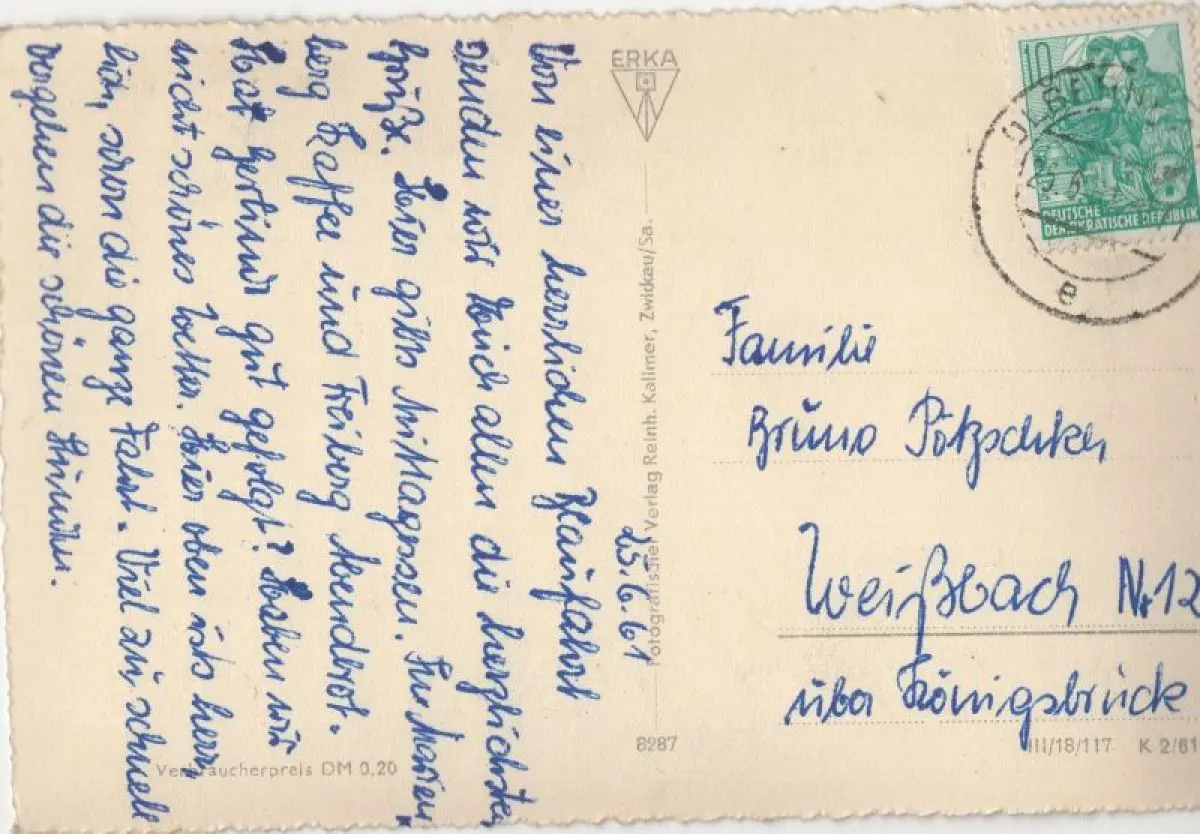 25.6.61
Von einer herrlichen Blaufahrt
senden wir Euch allen die herzlichsten
Grüße. Hier gibts Mittagessen. In Marien-
berg Kaffee und Freiberg Abendbrot.
Hat Gerlinde gut gefolgt? Haben wir
nicht schönes Wetter. Hier oben ists herr-
lich, schon die ganze Fahrt. Viel zu schnell
vergehen die schönen Stunden.
Verbraucherpreis DM 0,20
ERKA
Fotografischer Verlag Reinh. Kallmer, Zwickau/Sa.
8287
10
DEUTSCHE
DEMOKRATISCHE REPUBLIK
e
Familie
Bruno Pötzschke
Weißbach Nr 12
über Königsbrück
III/18/117 K 2/61